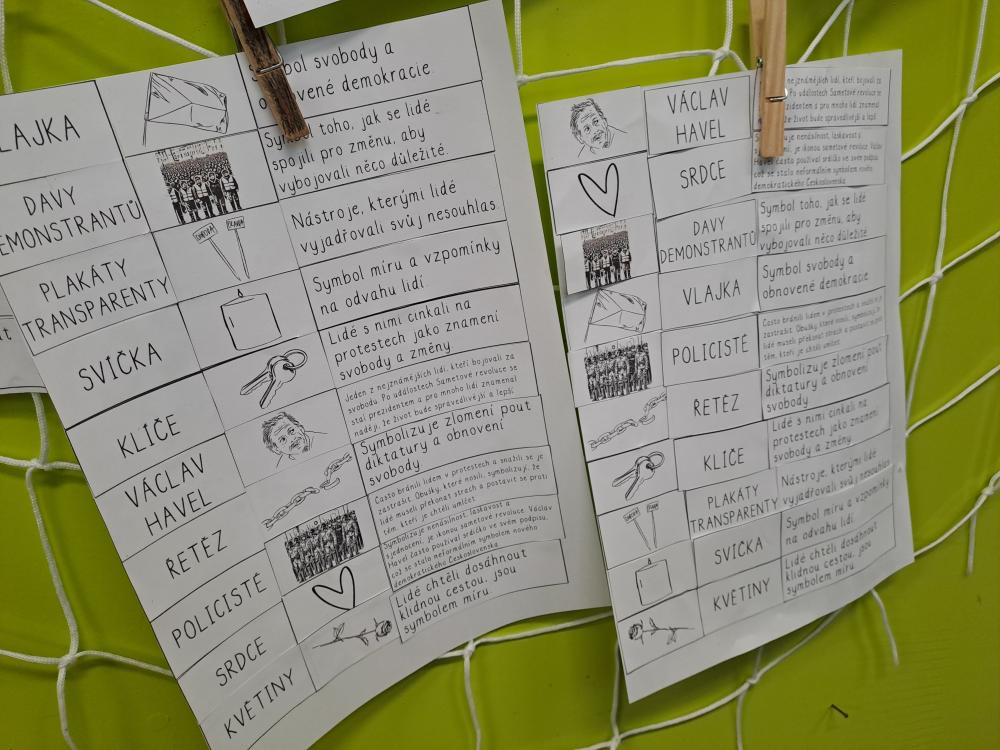 VLAJKA
Symbol svobody a
obnovené demokracie.
DAVY
DEMONSTRANTŮ
Symbol toho, jak se lidé
spojili pro změnu, aby
vybojovali něco důležité.
PLAKÁTY
TRANSPARENTY
SVOBODA
PRAVDA
Nástroje, kterými lidé
vyjadřovali svůj nesouhlas.
SVÍČKA
Symbol míru a vzpomínky
na odvahu lidí.
KLÍČE
Lidé s nimi cinkali na
protestech jako znamení
svobody a změny.
VÁCLAV
HAVEL
Jeden z nejznámějších lidí, kteří bojovali za
svobodu. Po událostech Sametové revoluce se
stal prezidentem a pro mnoho lidí znamenal
naději, že život bude spravedlivější a lepší.
ŘETĚZ
Symbolizuje zlomení pout
diktatury a obnovení
svobody.
POLICISTÉ
Často bránili lidem v protestech a snažili se je
zastrašit. Obušky, které nosili, symbolizují, že
lidé museli překonat strach a postavit se proti
těm, kteří je chtěli umlčet.
SRDCE
Symbolizuje nenásilnost, laskavost a
sjednocení, je ikonou sametové revoluce. Václav
Havel často používal srdíčko ve svém podpisu,
což se stalo neformálním symbolem nového
demokratického Československa.
KVĚTINY
Lidé chtěli dosáhnout
klidnou cestou, jsou
symbolem míru.
VÁCLAV
HAVEL
nejznámějších lidí, kteří bojovali za
Po událostech Sametové revoluce se
prezidentem a pro mnoho lidí znamenal
že život bude spravedlivější a lepší.
SRDCE
nenásilnost, laskavost a
je ikonou sametové revoluce. Václav
Havel často používal srdíčko ve svém podpisu,
což se stalo neformálním symbolem nového
demokratického Československa.
DAVY
DEMONSTRANTŮ
Symbol toho, jak se lidé
spojili pro změnu, aby
vybojovali něco důležité.
VLAJKA
Symbol svobody a
obnovené demokracie.
POLICISTÉ
Často bránili lidem v protestech a snažili se je
zastrašit. Obušky, které nosili, symbolizují, že
lidé museli překonat strach a postavit se proti
těm, kteří je chtěli umlčet.
ŘETĚZ
Symbolizuje zlomení pout
diktatury a obnovení
svobody.
KLÍČE
Lidé s nimi cinkali na
protestech jako znamení
svobody a změny.
PLAKÁTY
TRANSPARENTY
Nástroje, kterými lidé
vyjadřovali svůj nesouhlas.
SVÍČKA
Symbol míru a vzpomínky
na odvahu lidí.
KVĚTINY
Lidé chtěli dosáhnout
klidnou cestou, jsou
symbolem míru.